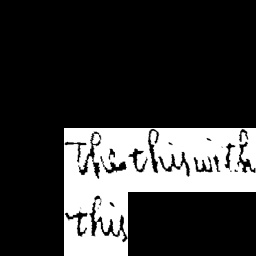 The this with
this